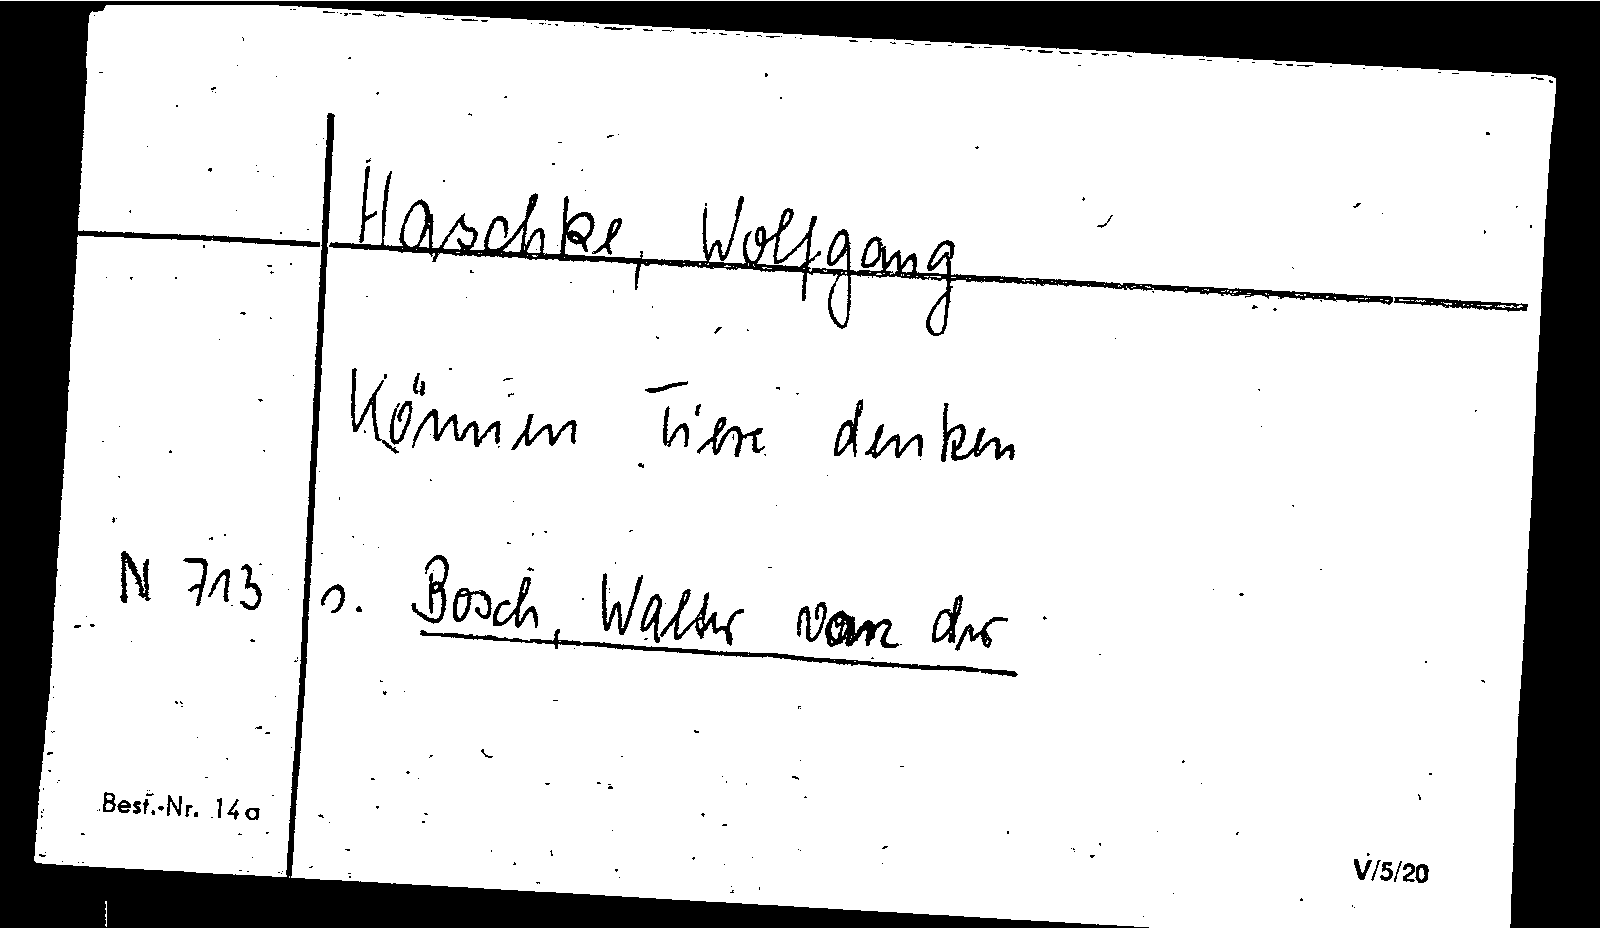 Haschke, Wolfgang
Können Tiere denken
N 713 s. Bosch, Walter van der
Best.-Nr. 14a
V/5/20